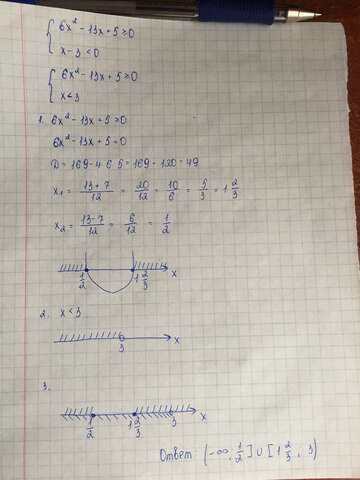 { 6x² - 13x + 5 ≥ 0
x - 3 < 0
{ 6x² - 13x + 5 ≥ 0
x < 3
1. 6x² - 13x + 5 ≥ 0
6x² - 13x + 5 = 0
D = 169 - 4 · 6 · 5 = 169 - 120 = 49
x₁ = (13+7)/12 = 20/12 = 10/6 = 5/3 = 1 2/3
x₂ = (13-7)/12 = 6/12 = 1/2
1/2 1 2/3 x
2. x < 3
3 x
3.
1/2 1 2/3 3 x
Ответ: (-∞; 1/2] ∪ [1 2/3; 3)